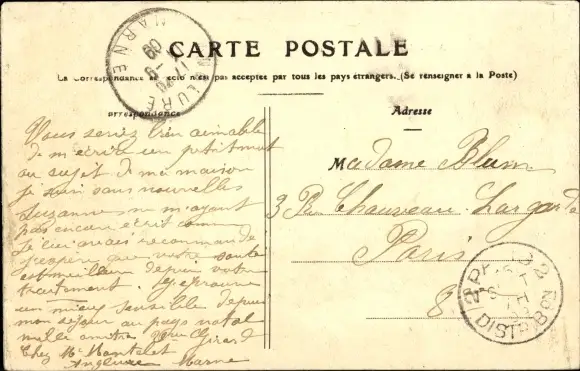 CARTE POSTALE
La Correspondance au recto n'est pas acceptée par tous les pays étrangers. (Se renseigner à la Poste)
Correspondance
Adresse
MARNE
LURE
Vous seriez bien aimable
de m'écrire un petit mot
au sujet de ma maison
je suis sans nouvelles
Suzanne ne m'ayant
pas encore écrit comme
je lui avais recommandé
J'espère que votre santé
est meilleur depuis votre
traitement. J'éprouve
un mieux sensible depuis
mon séjour au pays natal
mille amitiés Girard
Chez Me Hantelet
Anglure Marne
Madame Blum
3 R. Chauveau-Lagarde
Paris
8
DISTRIBON